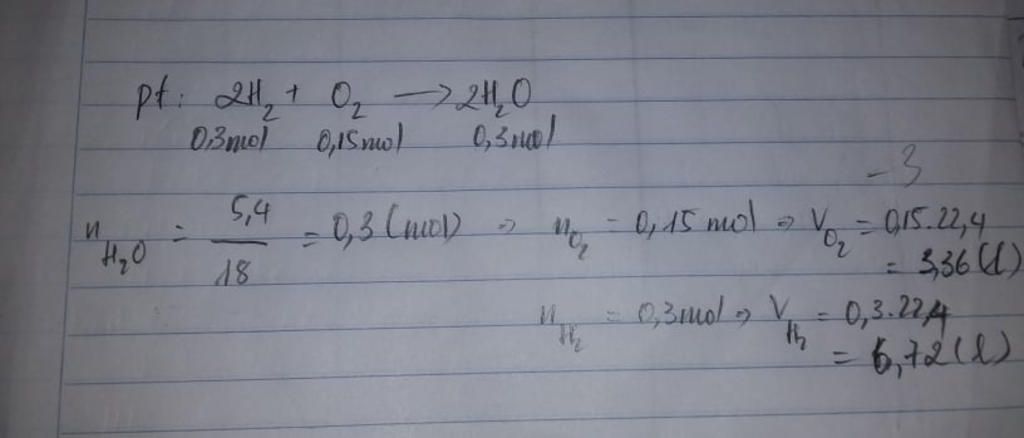 pt: 2H₂ + O₂ → 2H₂O
0,3mol 0,15mol 0,3mol
- 3
n H₂O = 5,4 / 18 = 0,3 (mol) ⇒ n O₂ = 0,15 mol ⇒ V O₂ = 0,15.22,4
= 3,36 (l)
n H₂ = 0,3mol ⇒ V H₂ = 0,3.22,4
= 6,72 (l)